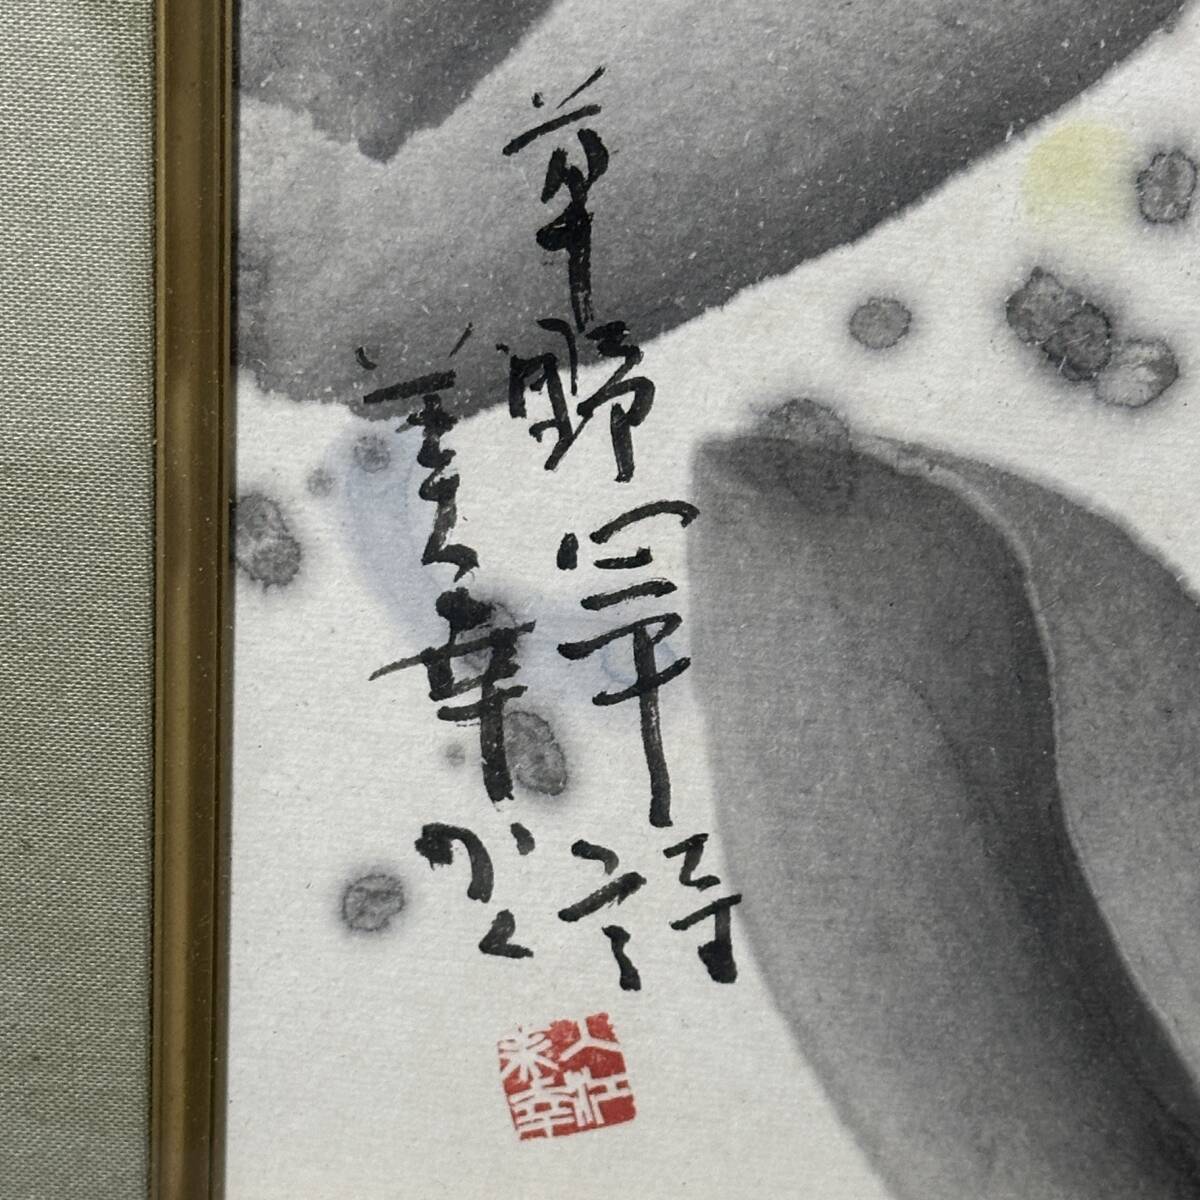 草野心平詩
美幸かく
入江
美幸